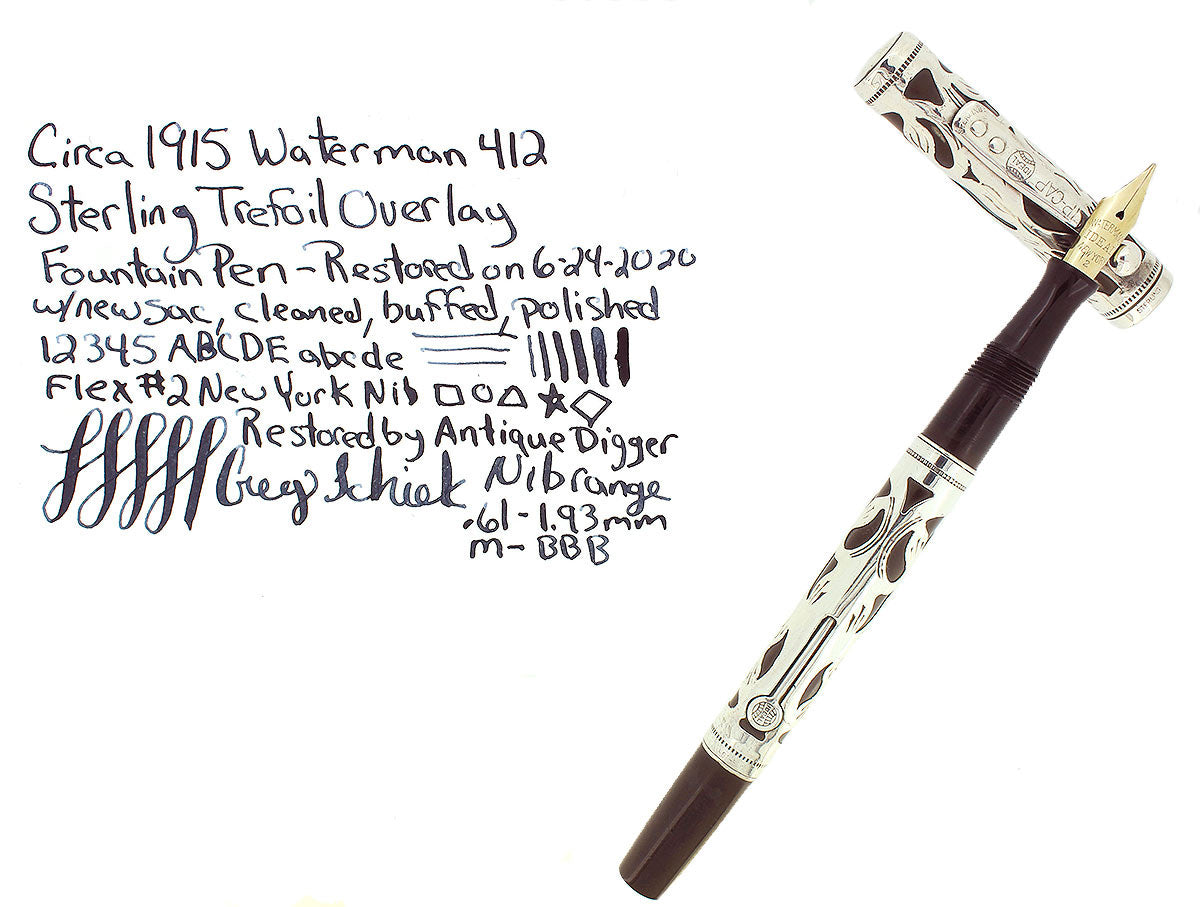 Circa 1915 Waterman 412
Sterling Trefoil Overlay
Fountain Pen - Restored on 6-24-2020
w/new sac, cleaned, buffed, polished
12345 ABCDE abcde
Flex #2 New York Nib
Restored by Antique Digger
Greg Nib range
.61 - 1.93mm
m - BBB
IDEAL
CLIP-CAP
WATERMAN
IDEAL
NEW YORK
2
STERLING